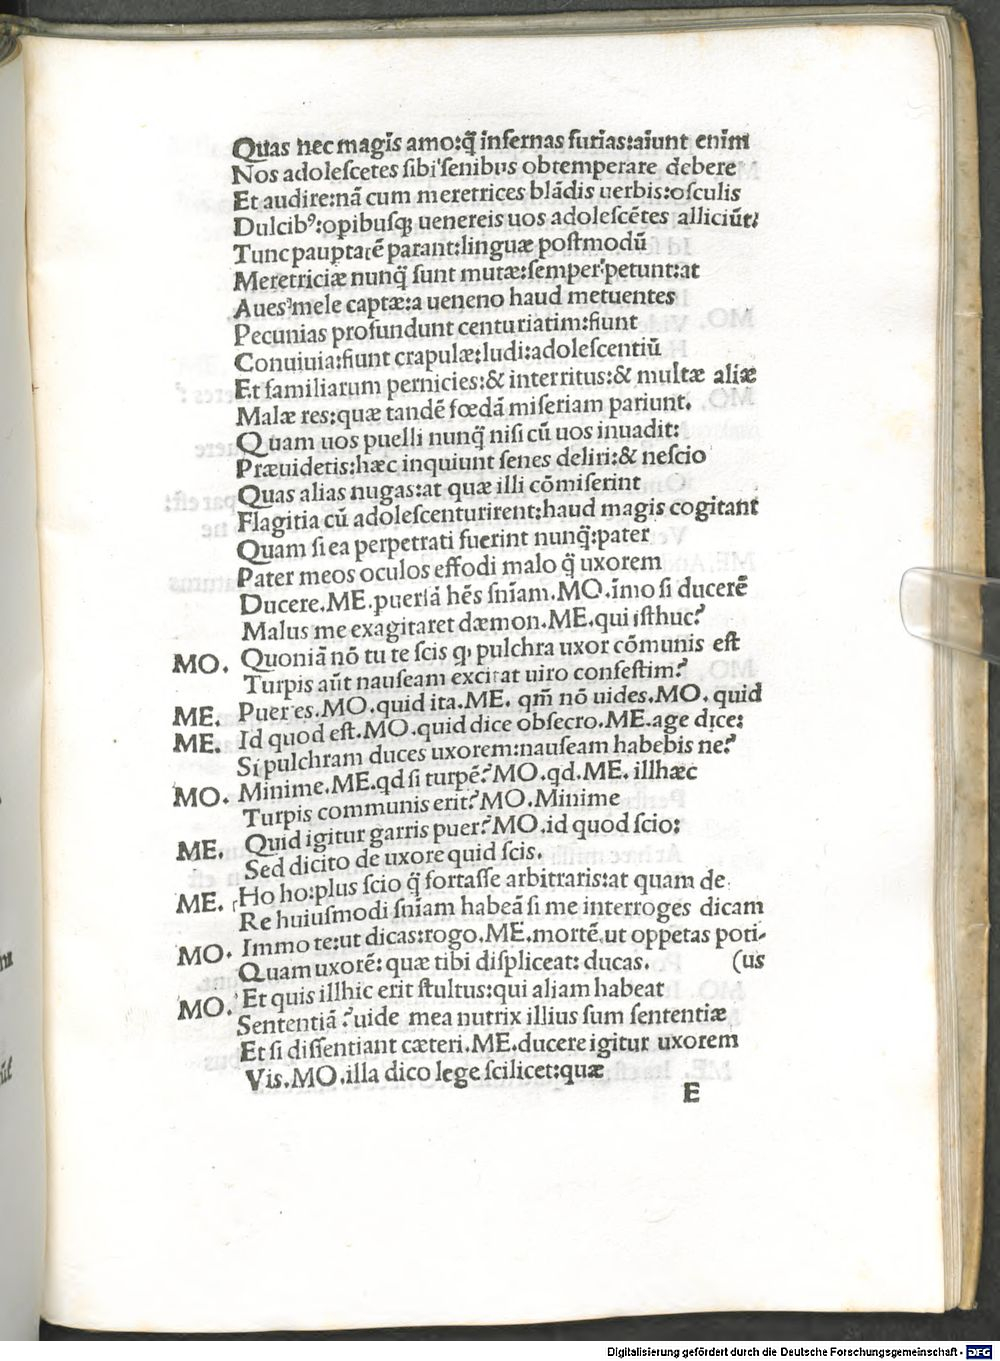 Quas nec magis amo:q̃ infernas furias:aiunt enim
Nos adolescẽtes sibi senibus obtemperare debere
Et audire:nã cum meretrices blãdis uerbis:osculis
Dulcibꝰ:opibusqꝫ uenereis uos adolescẽtes alliciũt:
Tunc pauptatẽ parant:linguæ postmodũ
Meretriciæ nunq̃ sunt mutæ:semper petunt:at
Aues mele captæ:a ueneno haud metuentes
Pecunias profundunt centuriatim:fiunt
Conuiuia:fiunt crapulæ:ludi:adolescentiũ
Et familiarum pernicies:& interritus:& multæ aliæ
Malæ res:quæ tandẽ fœdã miseriam pariunt.
Quam uos puelli nunq̃ nisi cũ uos inuadit:
Præuidetis:hæc inquiunt senes deliri:& nescio
Quas alias nugas:at quæ illi cõmiserint
Flagitia cũ adolescenturirent:haud magis cogitant
Quam si ea perpetrati fuerint nunq̃:pater
Pater meos oculos effodi malo q̃ uxorem
Ducere.ME.puerlã hẽs sniam.MO.ĩmo si ducerẽ
Malus me exagitaret dæmon.ME.qui isthuc?
MO. Quoniã nõ tu te scis qꝫ pulchra uxor cõmunis est
Turpis aũt nauseam excitat uiro confestim?
ME. Puer es.MO.quid ita.ME. qm̃ nõ uides.MO. quid
ME. Id quod est.MO.quid dice obsecro.ME.age dice:
Si pulchram duces uxorem:nauseam habebis ne?
MO. Minime.ME.qd si turpẽ?MO.qd.ME. illhæc
Turpis communis erit?MO.Minime
ME. Quid igitur garris puer?MO.id quod scio:
Sed dicito de uxore quid scis.
ME. Ho ho:plus scio q̃ fortasse arbitraris:at quam de
Re huiusmodi sñiam habeã si me interroges dicam
MO. Immo te:ut dicas:rogo.ME.mortẽ.ut oppetas poti-
Quam uxorẽ: quæ tibi displiceat: ducas. (us
MO. Et quis illhic erit stultus:qui aliam habeat
Sententiã ? uide mea nutrix illius sum sententiæ
Et si dissentiant cæteri.ME.ducere igitur uxorem
Vis.MO.illa dico lege scilicet:quæ
E
Digitalisierung gefördert durch die Deutsche Forschungsgemeinschaft - DFG